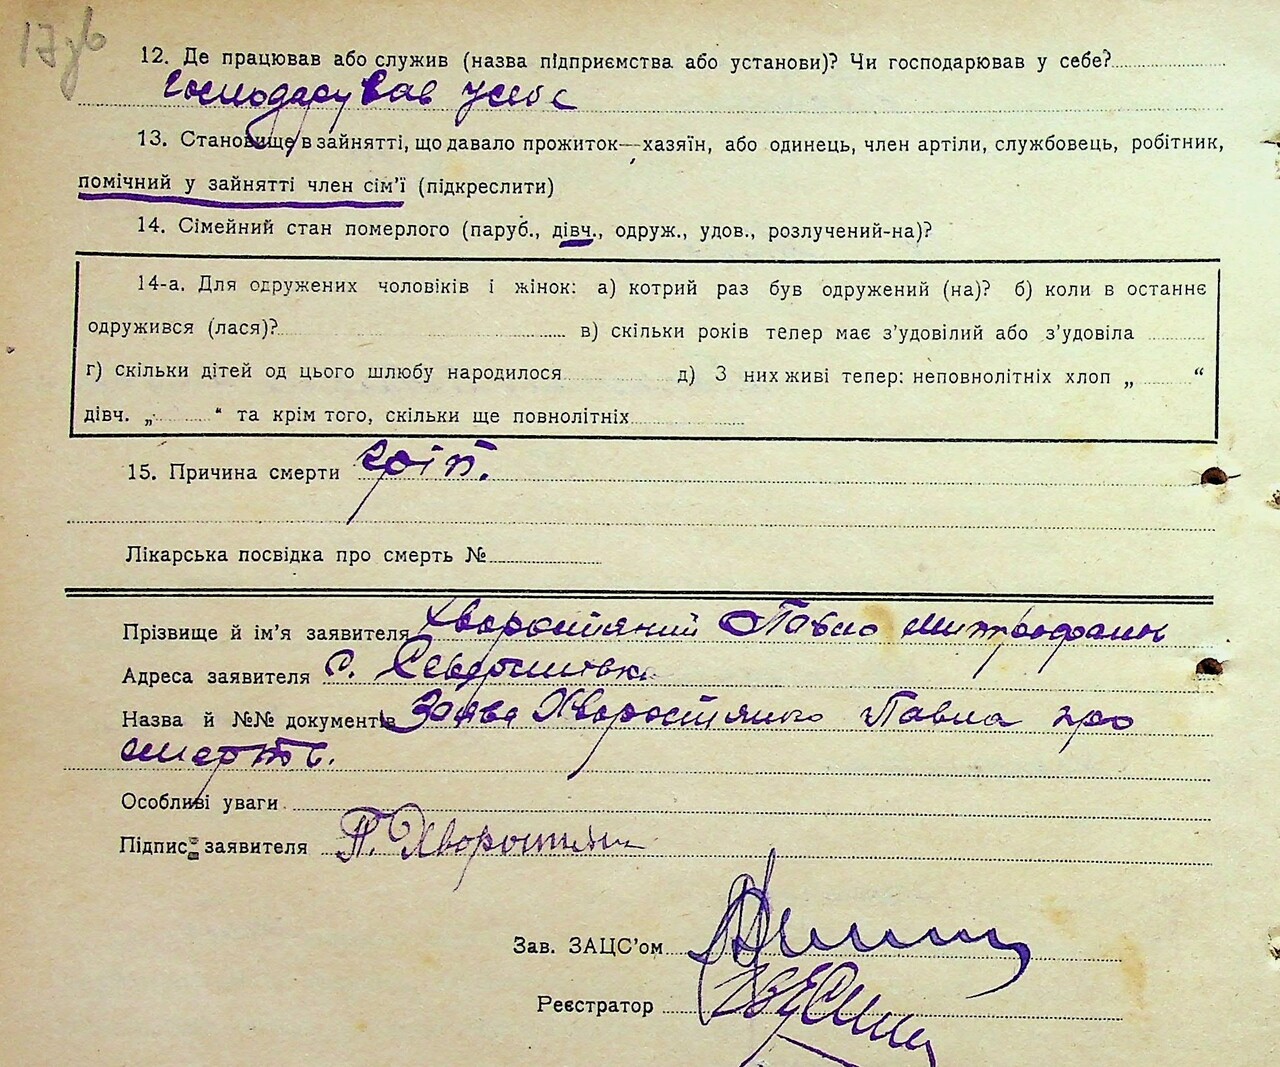 17зв
12. Де працював або служив (назва підприємства або установи)? Чи господарював у себе?
господарував у себе
13. Становище в зайнятті, що давало прожиток—хазяїн, або одинець, член артіли, службовець, робітник,
помічний у зайнятті член сім'ї (підкреслити)
14. Сімейний стан померлого (паруб., дівч., одруж., удов., розлучений-на)?
14-а. Для одружених чоловіків і жінок: а) котрий раз був одружений (на)? б) коли в останнє
одружився (лася)? в) скільки років тепер має з'удовілий або з'удовіла
г) скільки дітей од цього шлюбу народилося д) З них живі тепер: неповнолітніх хлоп „ “
дівч. „ “ та крім того, скільки ще повнолітніх
15. Причина смерти гріп.
Лікарська посвідка про смерть №
Прізвище й ім'я заявителя Хворостяний Павло Митрофанов
Адреса заявителя с.
Назва й №№ документів Заява Хворостяного Павла про
смерть.
Особливі уваги
Підпис заявителя П. Хворостян
Зав. ЗАЦС'ом
Реєстратор